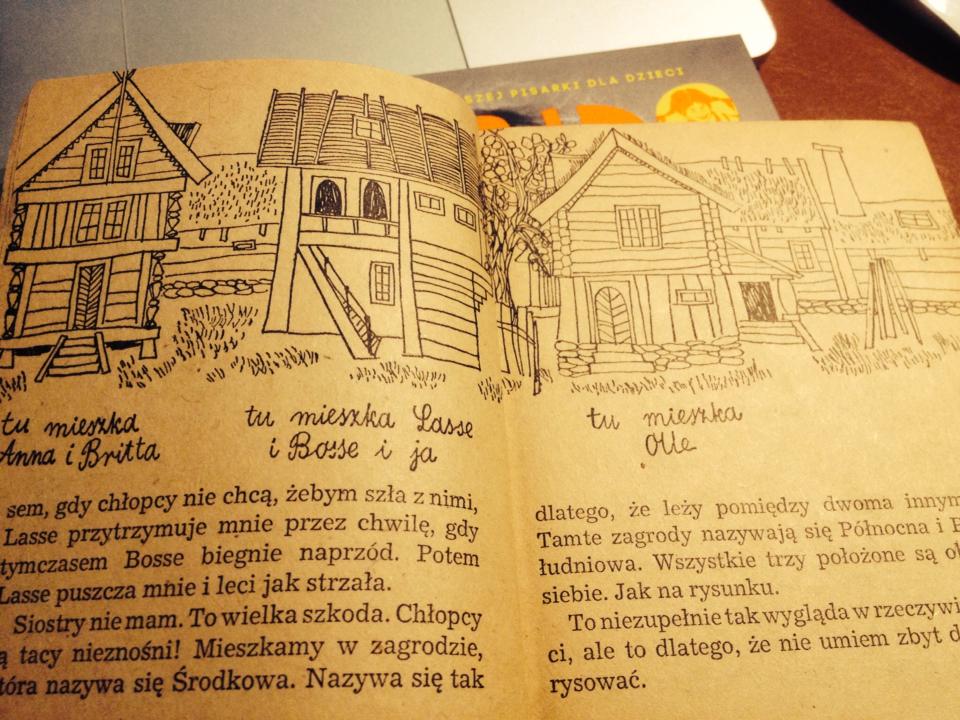 SZEJ PISARKI DLA DZIECI
tu mieszka
Anna i Britta
tu mieszka Lasse
i Bosse i ja
sem, gdy chłopcy nie chcą, żebym szła z nimi,
Lasse przytrzymuje mnie przez chwilę, gdy
tymczasem Bosse biegnie naprzód. Potem
Lasse puszcza mnie i leci jak strzała.
Siostry nie mam. To wielka szkoda. Chłopcy
ą tacy nieznośni! Mieszkamy w zagrodzie,
tóra nazywa się Środkowa. Nazywa się tak
tu mieszka
Olle
dlatego, że leży pomiędzy dwoma innym
Tamte zagrody nazywają się Północna i P
łudniowa. Wszystkie trzy położone są ob
siebie. Jak na rysunku.
To niezupełnie tak wygląda w rzeczywi
ci, ale to dlatego, że nie umiem zbyt d
rysować.